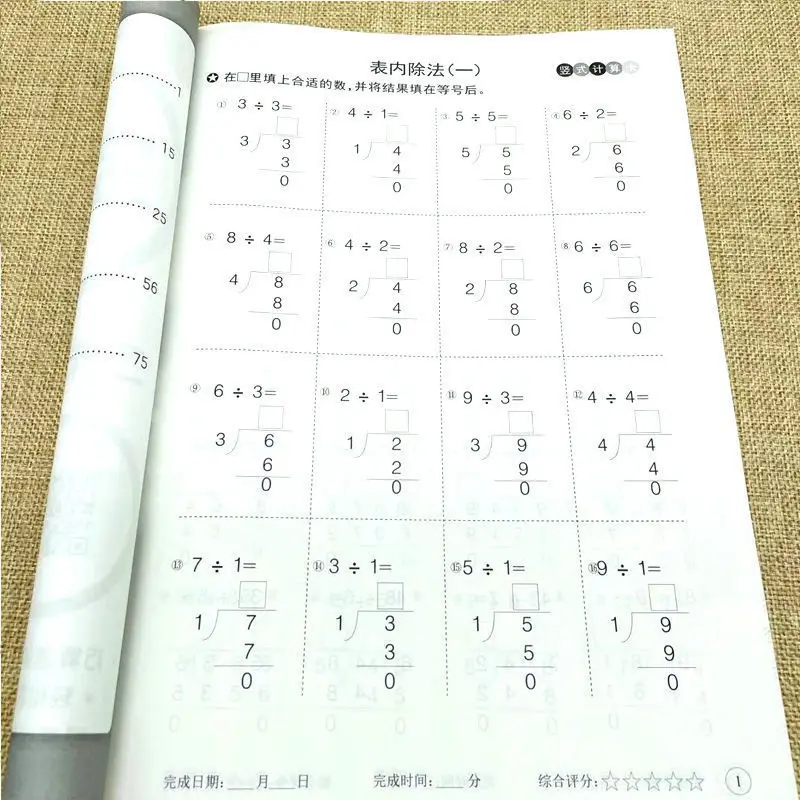 表内除法(一)
竖式计算
✪ 在□里填上合适的数,并将结果填在等号后。
① 3 ÷ 3= ② 4 ÷ 1= ③ 5 ÷ 5= ④ 6 ÷ 2=
3 3 1 4 5 5 2 6
3 4 5 6
0 0 0 0
⑤ 8 ÷ 4= ⑥ 4 ÷ 2= ⑦ 8 ÷ 2= ⑧ 6 ÷ 6=
4 8 2 4 2 8 6 6
8 4 8 6
0 0 0 0
⑨ 6 ÷ 3= ⑩ 2 ÷ 1= ⑪ 9 ÷ 3= ⑫ 4 ÷ 4=
3 6 1 2 3 9 4 4
6 2 9 4
0 0 0 0
⑬ 7 ÷ 1= ⑭ 3 ÷ 1= ⑮ 5 ÷ 1= ⑯ 9 ÷ 1=
1 7 1 3 1 5 1 9
7 3 5 9
0 0 0 0
完成日期:__月__日 完成时间:__分 综合评分:☆☆☆☆☆ 1
1
15
25
56
75